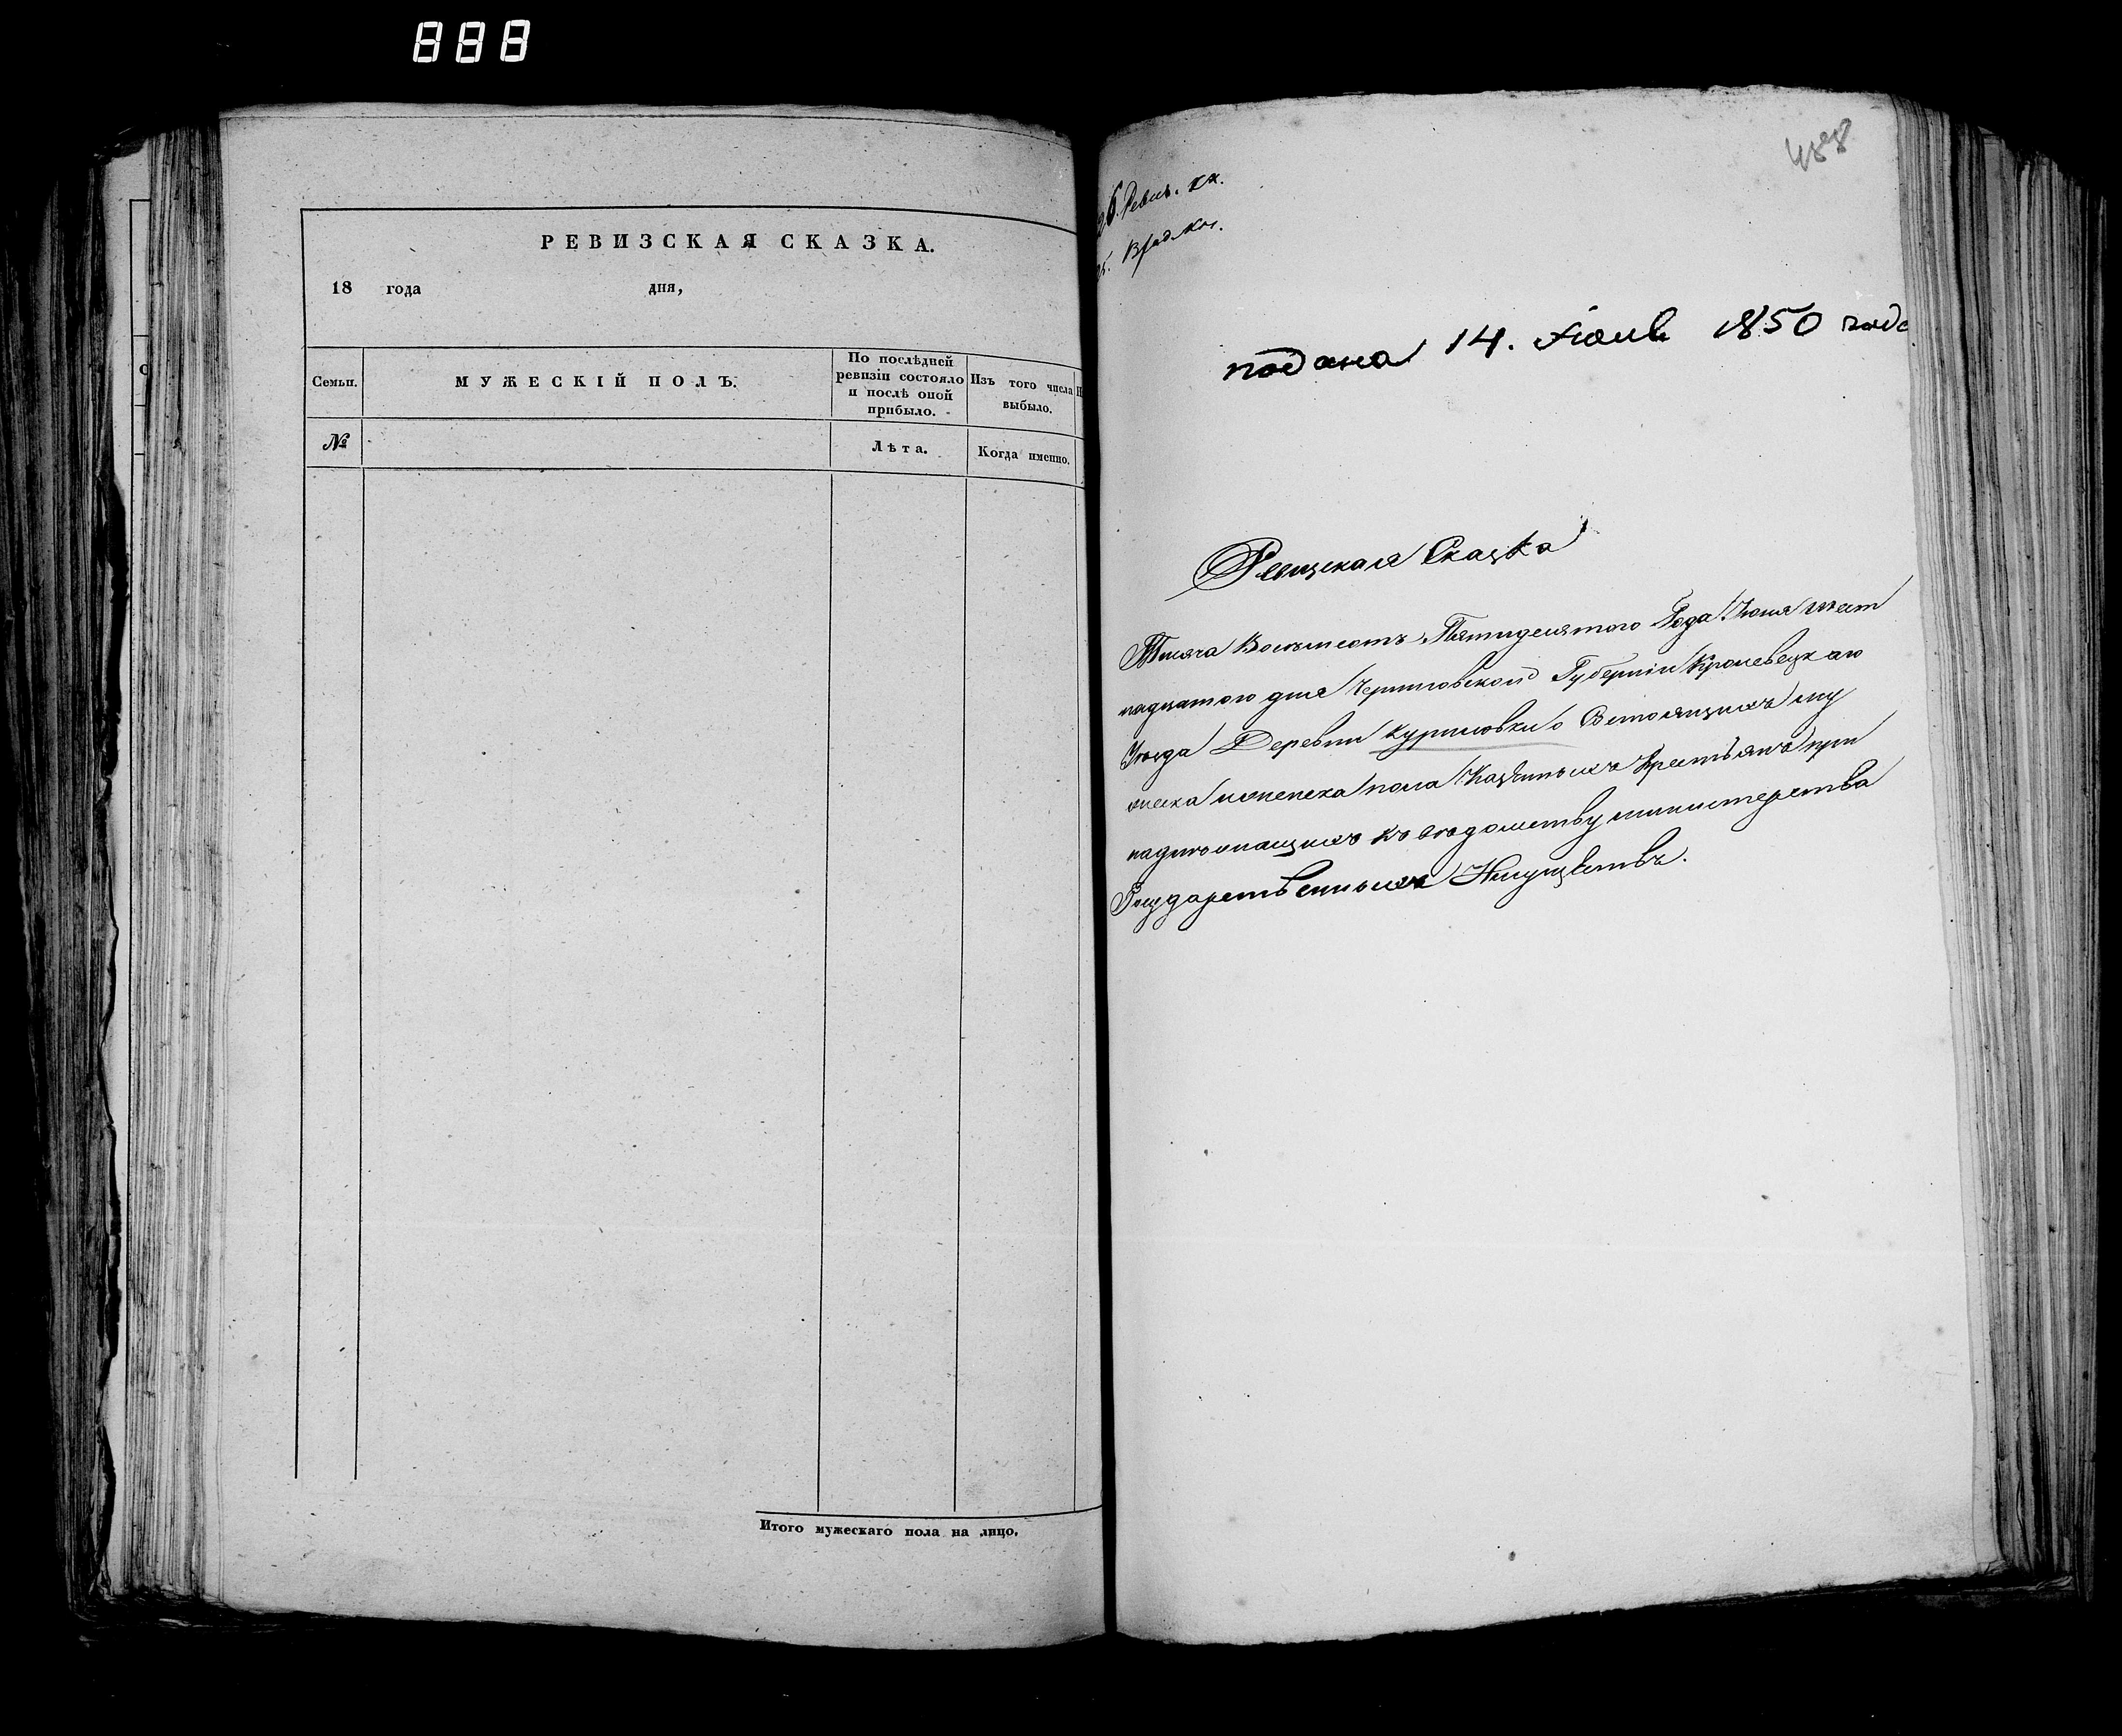 888
РЕВИЗСКАЯ СКАЗКА.
18 года дня,
Семьи.
МУЖЕСКІЙ ПОЛЪ.
По послѣдней
ревизіи состояло
и послѣ оной
прибыло.
Изъ того числа
выбыло.
№
Лѣта.
Когда именно.
Итого мужескаго пола на лицо.
488
Ревиз. кн.
подана 14. Июнь 1850 года
Ревизская Сказка
Тысяча Восемьсотъ Пятидесятого Года Июня шест
надцатого дня Черниговской Губерніи Кролевецкаго
Уезда Деревни Куриловки о Состоящихъ му
жеска и женска пола Казенныхъ Крестьянъ при
надлежащихъ къ ведомству министерства
Государственныхъ Имуществъ.